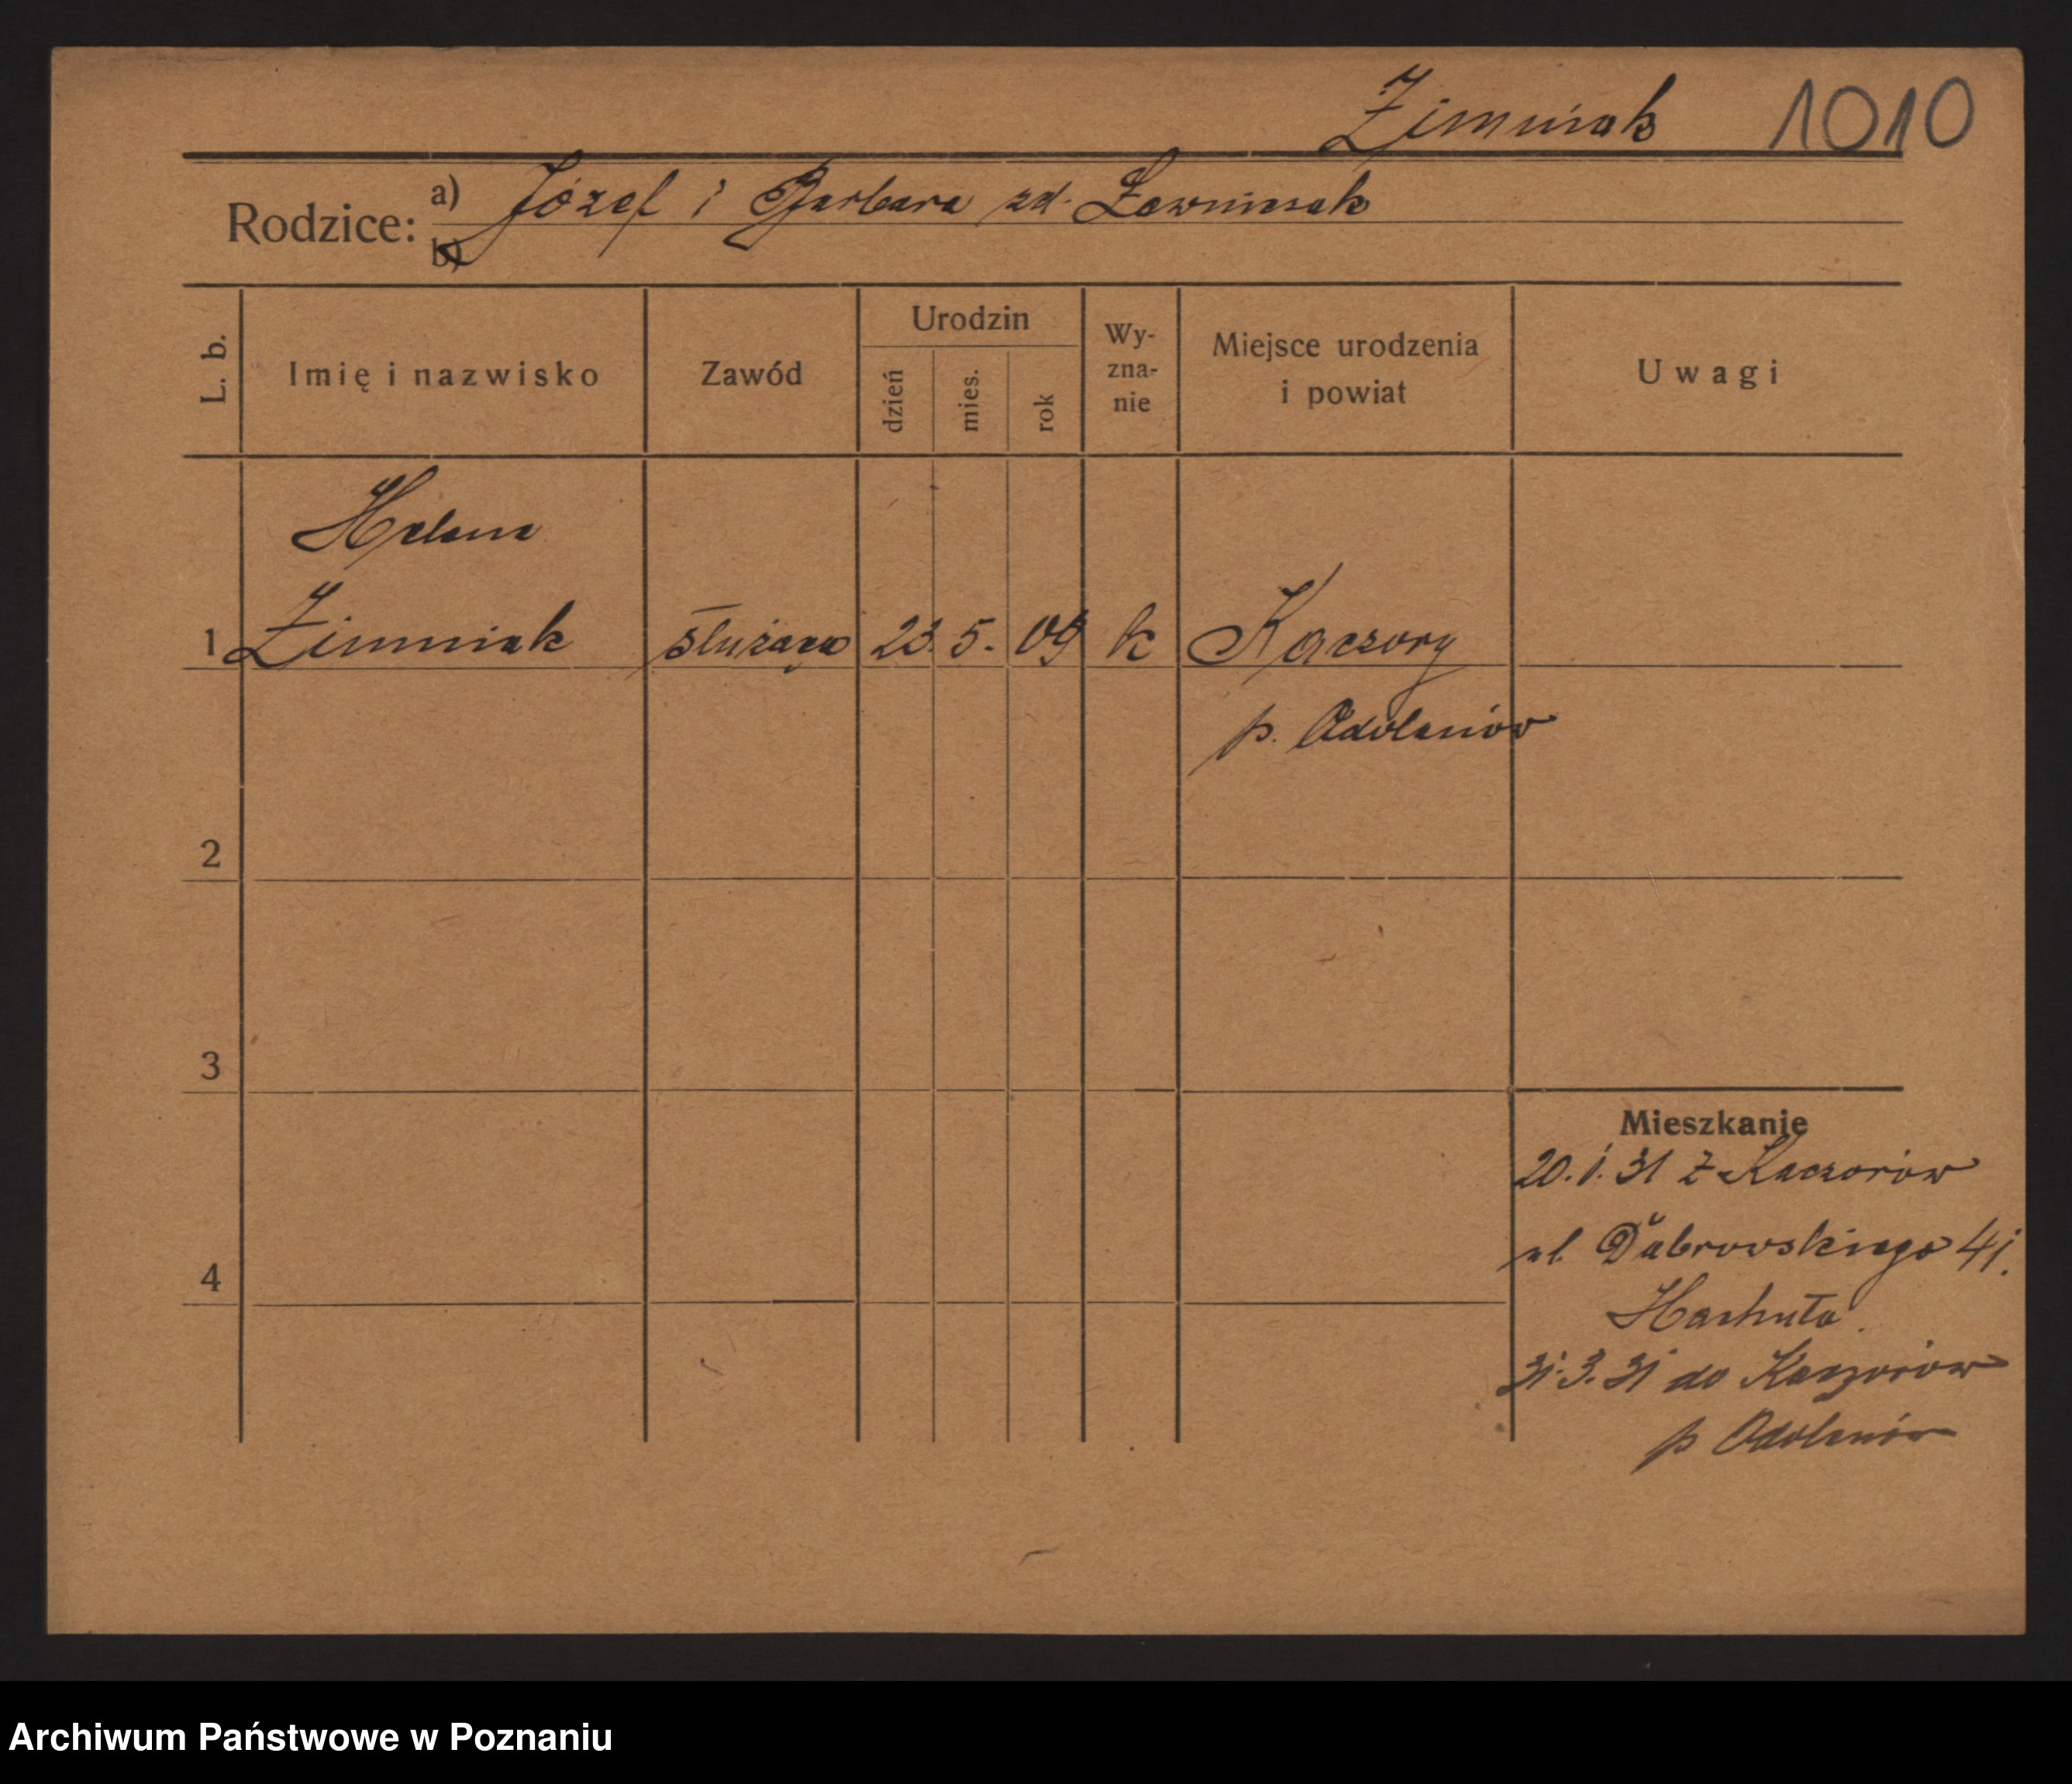 Zimniak 1010
Rodzice: a) Józef i Barbara zd.
b)
L. b. Imię i nazwisko Zawód Urodzin dzień mies. rok Wy-zna-nie Miejsce urodzenia i powiat Uwagi
Helena
1 Zimniak służąca 23. 5. 09 k Kaczory
p. Odolanów
2
3
Mieszkanie
20.1.31 z Kaczorów
ul. Dąbrowskiego 41.
4
31.3.31 do Kaczorów
p Odolanów
Archiwum Państwowe w Poznaniu